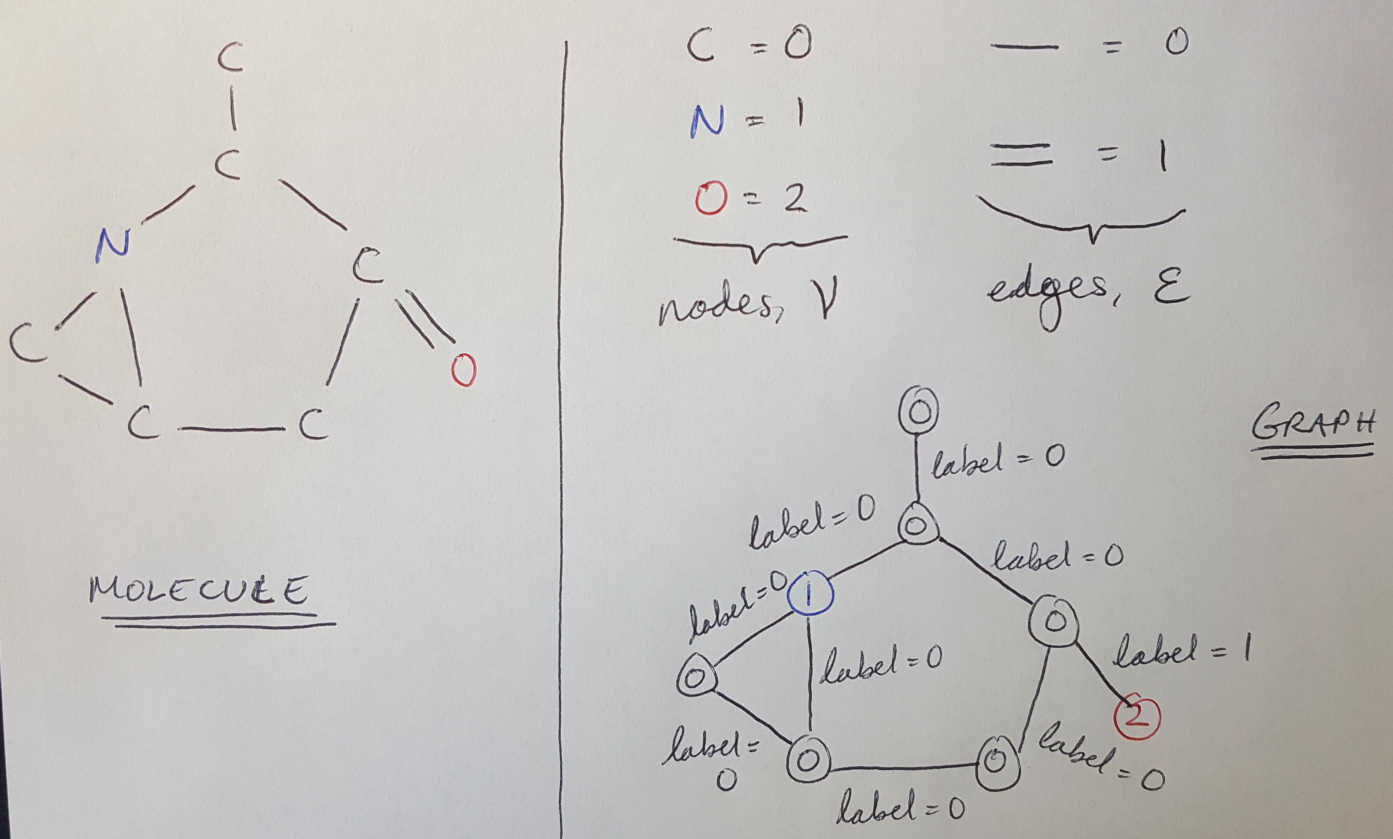 C
C
N
C
C
O
C
C
MOLECULE
C = 0
N = 1
O = 2
nodes, V
— = 0
= = 1
edges, ε
GRAPH
0
label = 0
label = 0
0
label = 0
label = 0
1
0
label = 1
label = 0
0
2
label = 0
label =
0
0
0
label = 0
label = 0